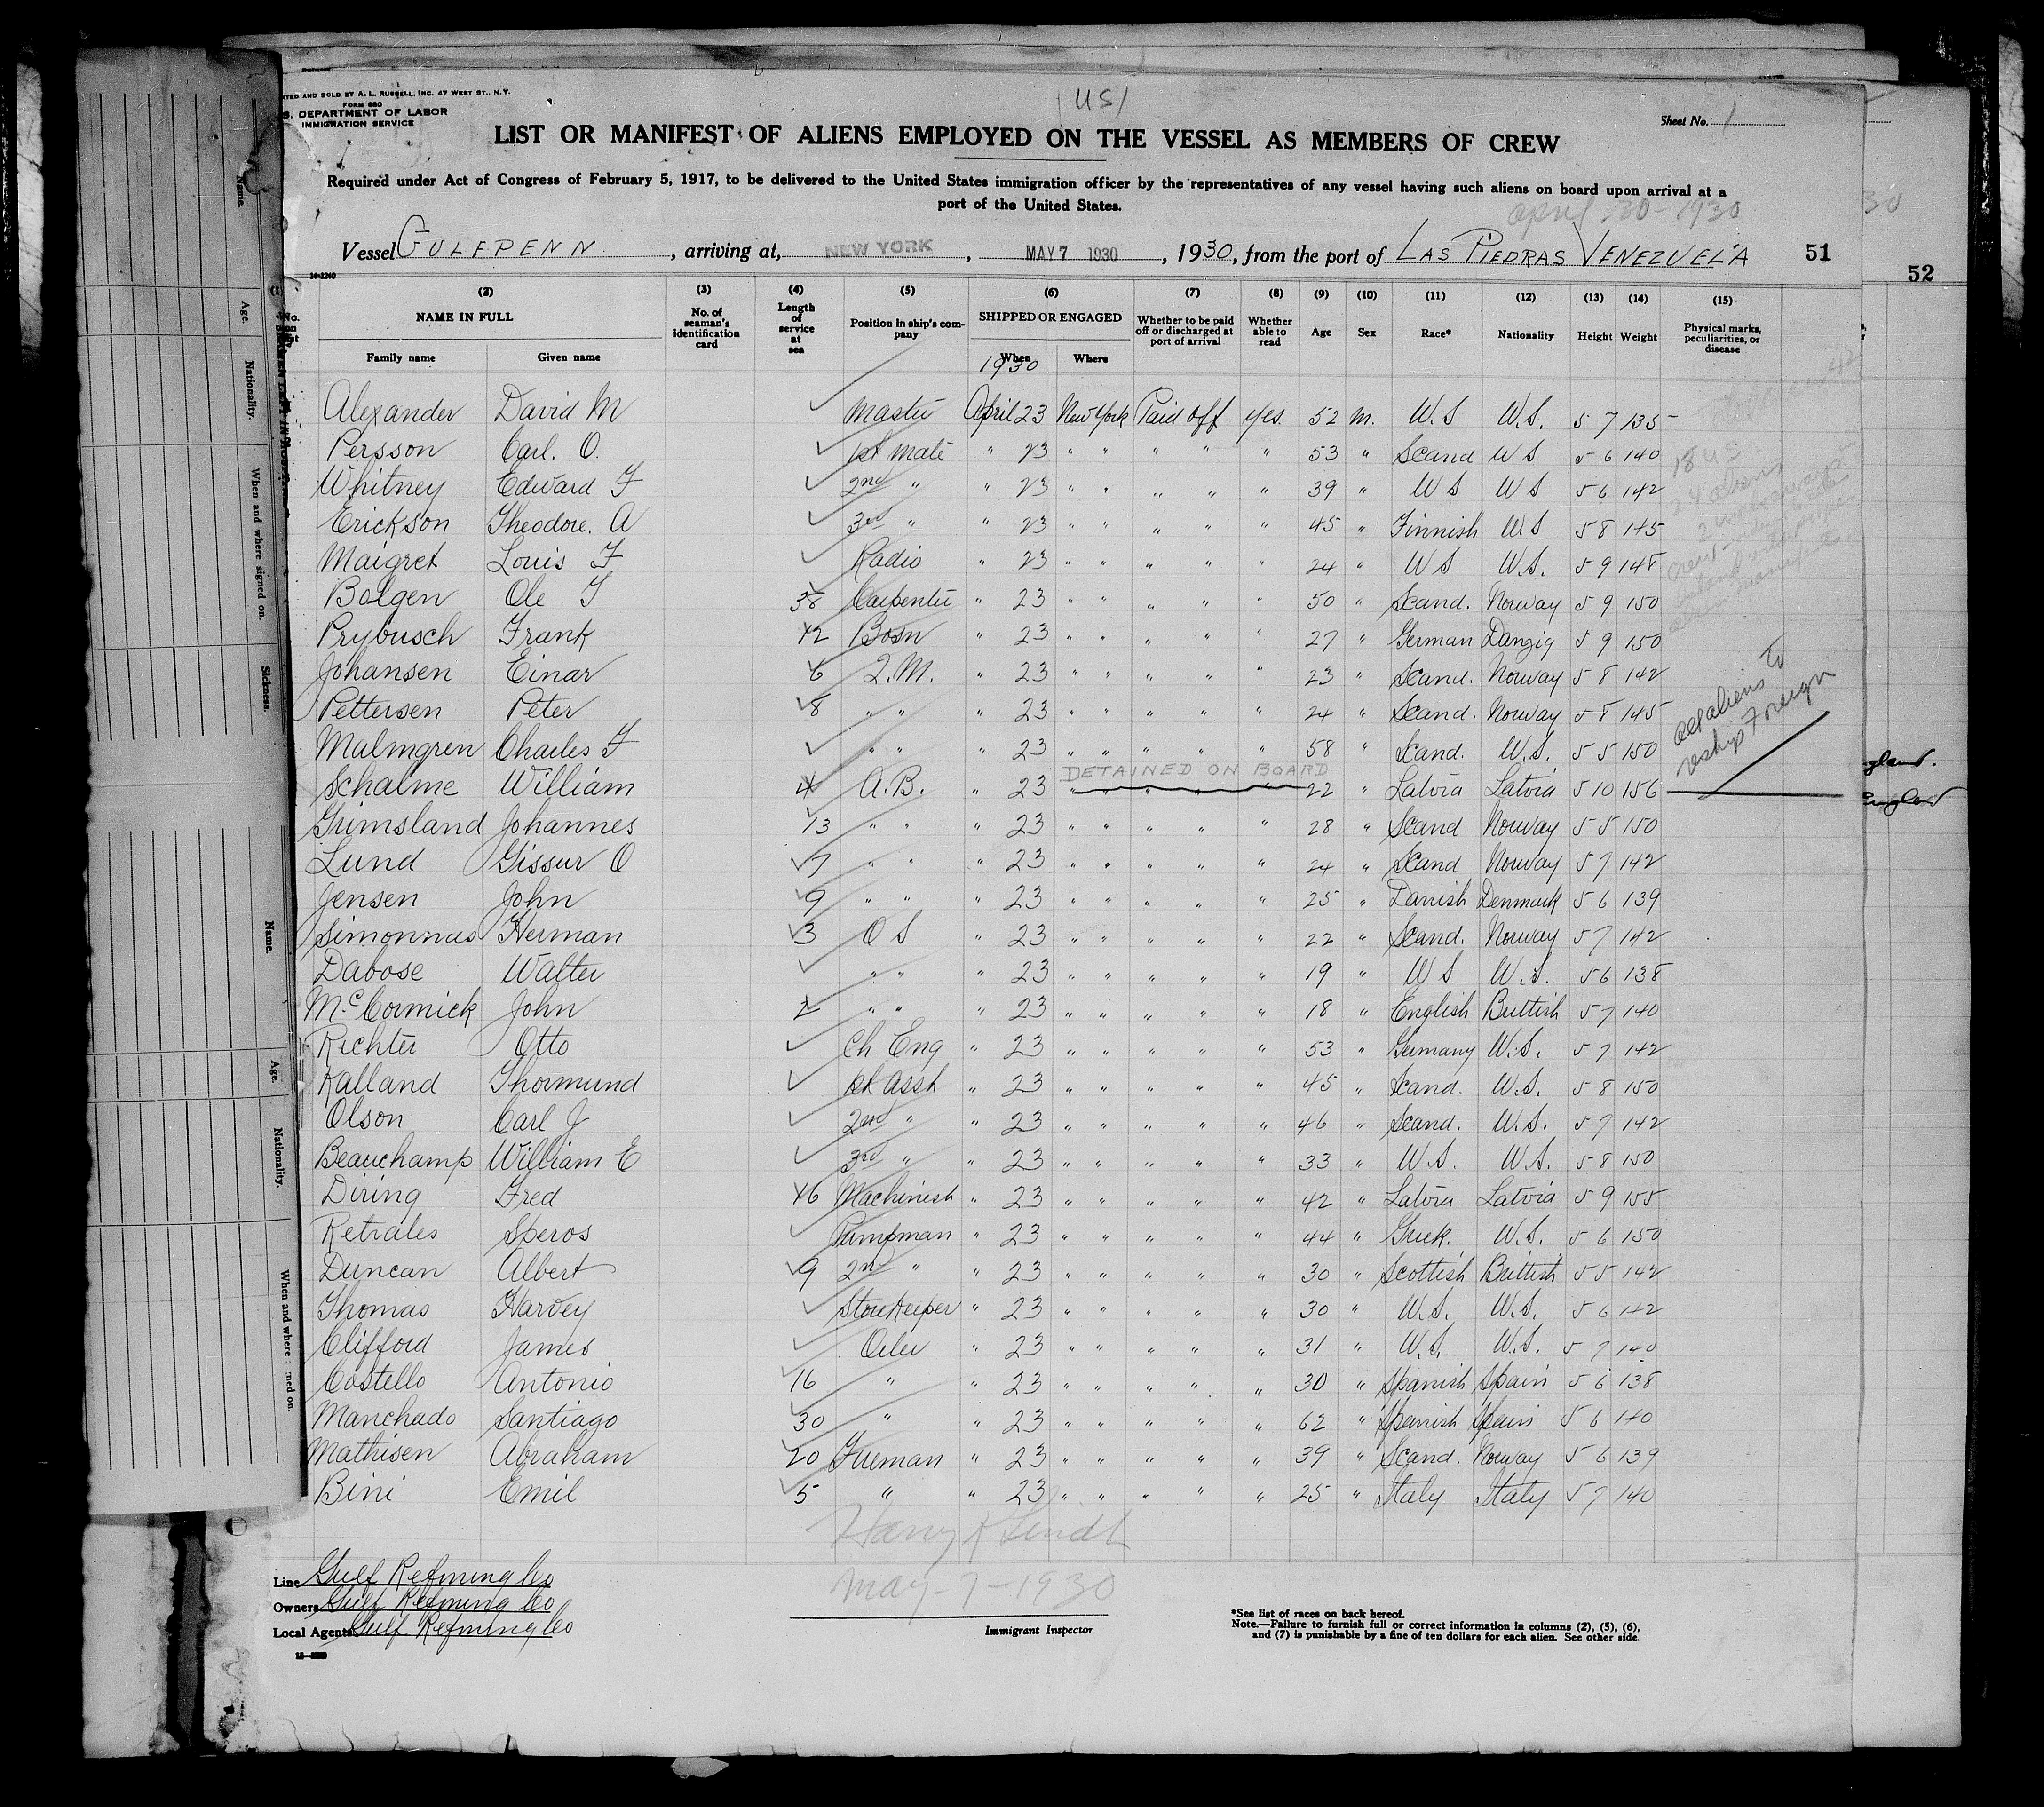 US/
PRINTED AND SOLD BY A. L. RUSSELL, INC. 47 WEST ST., N.Y.
FORM 680
U.S. DEPARTMENT OF LABOR
IMMIGRATION SERVICE
Sheet No. 1
LIST OR MANIFEST OF ALIENS EMPLOYED ON THE VESSEL AS MEMBERS OF CREW
Required under Act of Congress of February 5, 1917, to be delivered to the United States immigration officer by the representatives of any vessel having such aliens on board upon arrival at a
port of the United States.
April 30-1930
Vessel GULFPENN, arriving at, NEW YORK, MAY 7 1930, 1930, from the port of LAS PIEDRAS VENEZUELA 51
52
14-1240
(2) NAME IN FULL Family name Given name
(3) No. of seaman's identification card
(4) Length of service at sea
(5) Position in ship's company
(6) SHIPPED OR ENGAGED When Where
1930
(7) Whether to be paid off or discharged at port of arrival
(8) Whether able to read
(9) Age
(10) Sex
(11) Race*
(12) Nationality
(13) Height
(14) Weight
(15) Physical marks, peculiarities, or disease
Alexander David M Master April 23 New York Paid off yes. 52 m. U.S U.S. 5 7 135
Persson Carl. O. 1st Mate " 23 " " " " " 53 " Scand US 5 6 140
Whitney Edward F 2nd " " 23 " " " " " 39 " US US 5 6 142
Erickson Theodore. A 3rd " " 23 " " " " 45 " Finnish U.S 5 8 145
Maigret Louis F Radio " 23 " " " " " 24 " US U.S. 5 9 148
Bolgen Ole T 38 Carpenter " 23 " " " " " 50 " Scand. Norway 5 9 150
Prybusch Frank 12 Bosn " 23 " " " " " 27 " German Danzig 5 9 150
Johansen Einar 6 Q.M. " 23 " " " " " 23 " Scand. Norway 5 8 142
Pettersen Peter 8 " " " 23 " " " " " 24 " Scand. Norway 5 8 145
Malmgren Charles F " " " 23 " " " " " 58 " Scand. U.S. 5 5 150
DETAINED ON BOARD
Schalme William 4 A.B. " 23 " " " " " 22 " Latvia Latvia 5 10 156
All aliens to reship Foreign
Grimsland Johannes 13 " " " 23 " " " " " 28 " Scand Norway 5 5 150
Lund Gissur O 7 " " " 23 " " " " " 24 " Scand Norway 5 7 142
Jensen John 9 " " " 23 " " " " " 25 " Danish Denmark 5 6 139
Simonnus Herman 3 O S " 23 " " " " " 22 " Scand. Norway 5 7 142
Dabose Walter " " " 23 " " " " " 19 " US U.S. 5 6 138
McCormick John 2 " " " 23 " " " " " 18 " English Brittish 5 7 140
Richter Otto Ch Eng " 23 " " " " " 53 " Germany U.S. 5 7 142
Kalland Thormund 1st Asst " 23 " " " " " 45 " Scand. U.S. 5 8 150
Olson Carl J 2nd " " 23 " " " " " 46 " Scand. U.S. 5 7 142
Beauchamp William E 3rd " " 23 " " " " " 33 " U.S. U.S. 5 8 150
Diring Fred 16 Machinist " 23 " " " " " 42 " Latvia Latvia 5 9 155
Retrales Speros Pumpman " 23 " " " " " 44 " Greek. U.S. 5 6 150
Duncan Albert 9 2nd " " 23 " " " " " 30 " Scottish Brittish 5 5 142
Thomas Harvey Storekeeper " 23 " " " " " 30 " U.S. U.S. 5 6 142
Clifford James Oiler " 23 " " " " " 31 " U.S. U.S. 5 7 140
Costello Antonio 16 " " 23 " " " " " 30 " Spanish Spain 5 6 138
Manchado Santiago 30 " " 23 " " " " " 62 " Spanish Spain 5 6 140
Mathisen Abraham 20 Fireman " 23 " " " " " 39 " Scand. Norway 5 6 139
Bini Emil 5 " " 23 " " " " " 25 " Italy Italy 5 7 140
May-7-1930
Line Gulf Refining Co
Owners Gulf Refining Co
Local Agents Gulf Refining Co
Immigrant Inspector
*See list of races on back hereof.
Note.—Failure to furnish full or correct information in columns (2), (5), (6),
and (7) is punishable by a fine of ten dollars for each alien. See other side
Name.
Age.
Nationality.
When and where signed on.
Sickness.
Name.
Age.
Nationality.